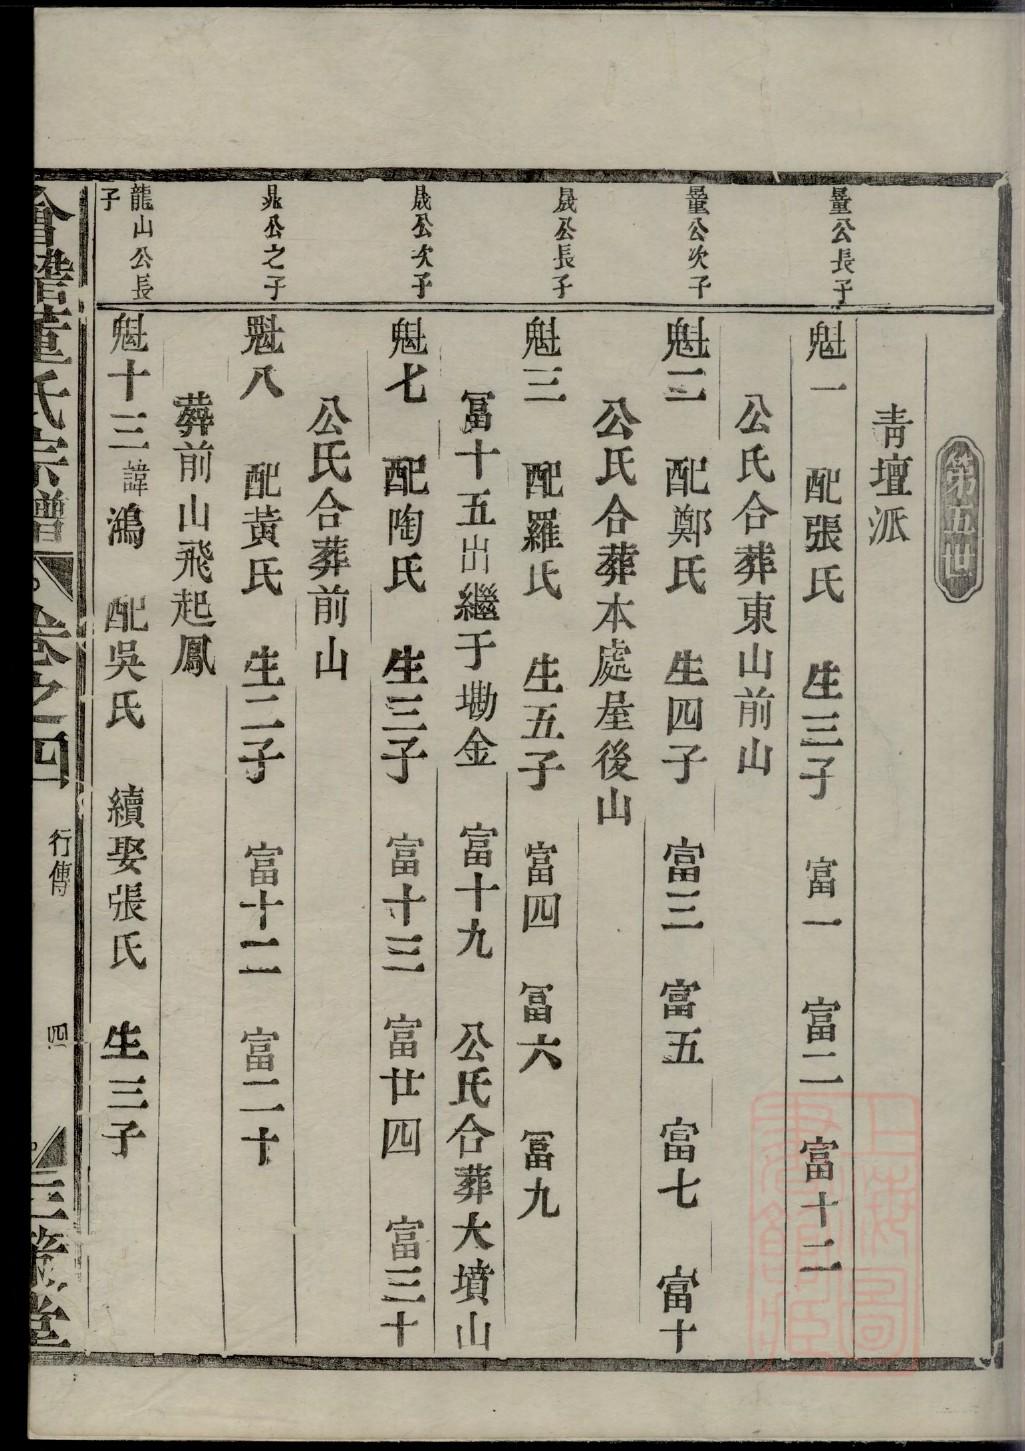 第五世
青壇派
量公長子
魁一 配張氏 生三子 富一 富二 富十二
公氏合葬東山前山
量公次子
魁二 配鄭氏 生四子 富三 富五 富七 富十
公氏合葬本處屋後山
晟公長子
魁三 配羅氏 生五子 富四 冨六 冨九
冨十五出繼于墈金 富十九 公氏合葬大墳山
晟公次子
魁七 配陶氏 生三子 富十三 富廿四 富三十
公氏合葬前山
晁公之子
魁八 配黃氏 生二子 富十二 富二十
葬前山飛起鳳
龍山公長子
魁十三 諱鴻 配吳氏 續娶張氏 生三子
會稽董氏宗譜 卷之四 行傳 四 三策堂
上海圖書館藏